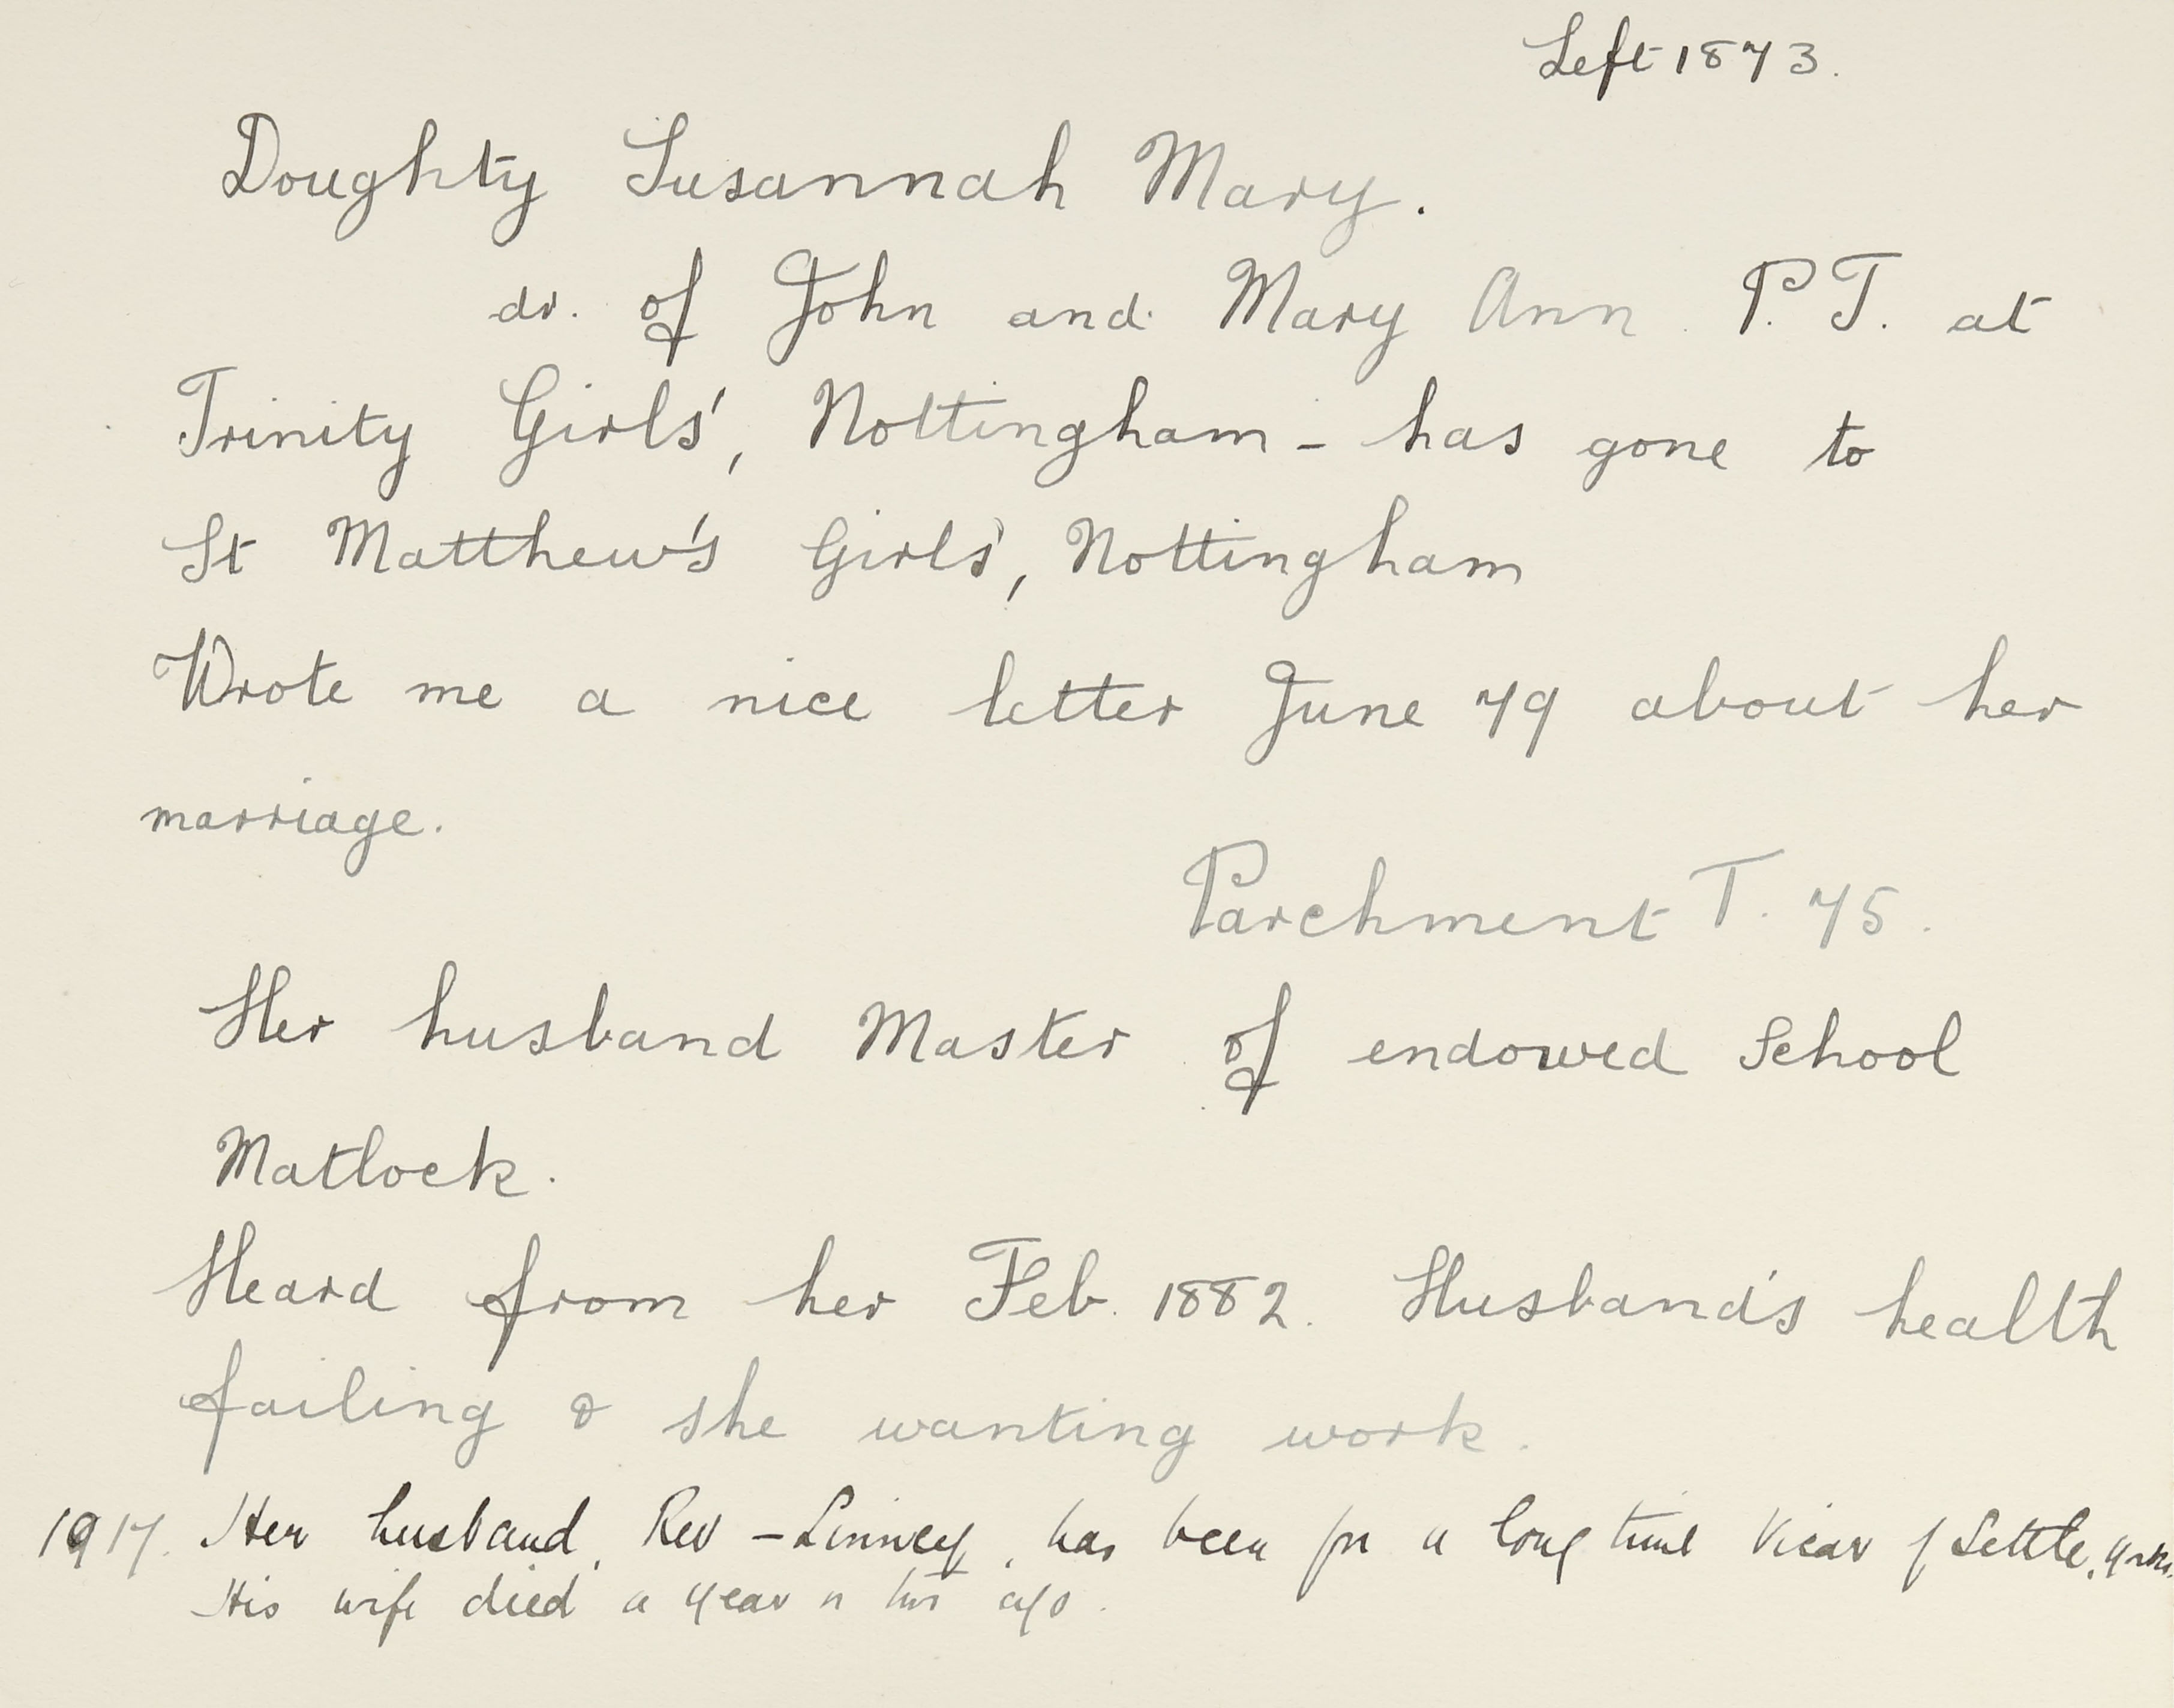 Left 1873.
Doughty Susannah Mary.
dr. of John and Mary Ann. P.T. at
Trinity Girls', Nottingham - has gone to
St Matthew's Girls', Nottingham
Wrote me a nice letter June 79 about her
marriage.
Parchment T. 75.
Her husband Master of endowed School
Matlock.
Heard from her Feb. 1882. Husband's health
failing & she wanting work.
1917. Her husband, Rev - Linney, has been for a long time Vicar of Settle, Yorks.
His wife died a year or two ago.